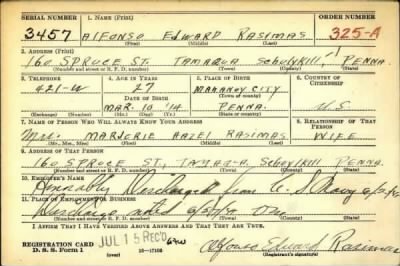 SERIAL NUMBER 1. NAME (Print) ORDER NUMBER
3457 Alfonso Edward Rasimas 325-A
(First) (Middle) (Last)
2. ADDRESS (Print)
160 SPRUCE ST. TAMAQUA Schuylkill PENNA.
(Number and street or R. F. D. number) (Town) (County) (State)
3. TELEPHONE 4. AGE IN YEARS 5. PLACE OF BIRTH 6. COUNTRY OF CITIZENSHIP
421-W 27 MAHANOY CITY
DATE OF BIRTH (Town or county)
MAR. 10 '14 PENNA. U.S.
(Exchange) (No.) (Mo.) (Day) (Yr.) (State or country)
7. NAME OF PERSON WHO WILL ALWAYS KNOW YOUR ADDRESS 8. RELATIONSHIP OF THAT PERSON
Mrs. MARJORIE HAZEL RASIMAS WIFE
(Mr., Mrs., Miss) (First) (Middle) (Last)
9. ADDRESS OF THAT PERSON
160 SPRUCE ST, TAMAQ-A. Schuylkill PENNA.
(Number and street or R. F. D. number) (Town) (County) (State)
10. EMPLOYER'S NAME
Honorably Discharged from U. S. Navy
11. PLACE OF EMPLOYMENT OR BUSINESS
Discharge noted
(Number and street or R. F. D. number) (Town) (County) (State)
I AFFIRM THAT I HAVE VERIFIED ABOVE ANSWERS AND THAT THEY ARE TRUE.
REGISTRATION CARD JUL 15 REC'D Alfonso Edward Rasimas
D. S. S. Form 1 (over) 16-17105 (Registrant's signature)